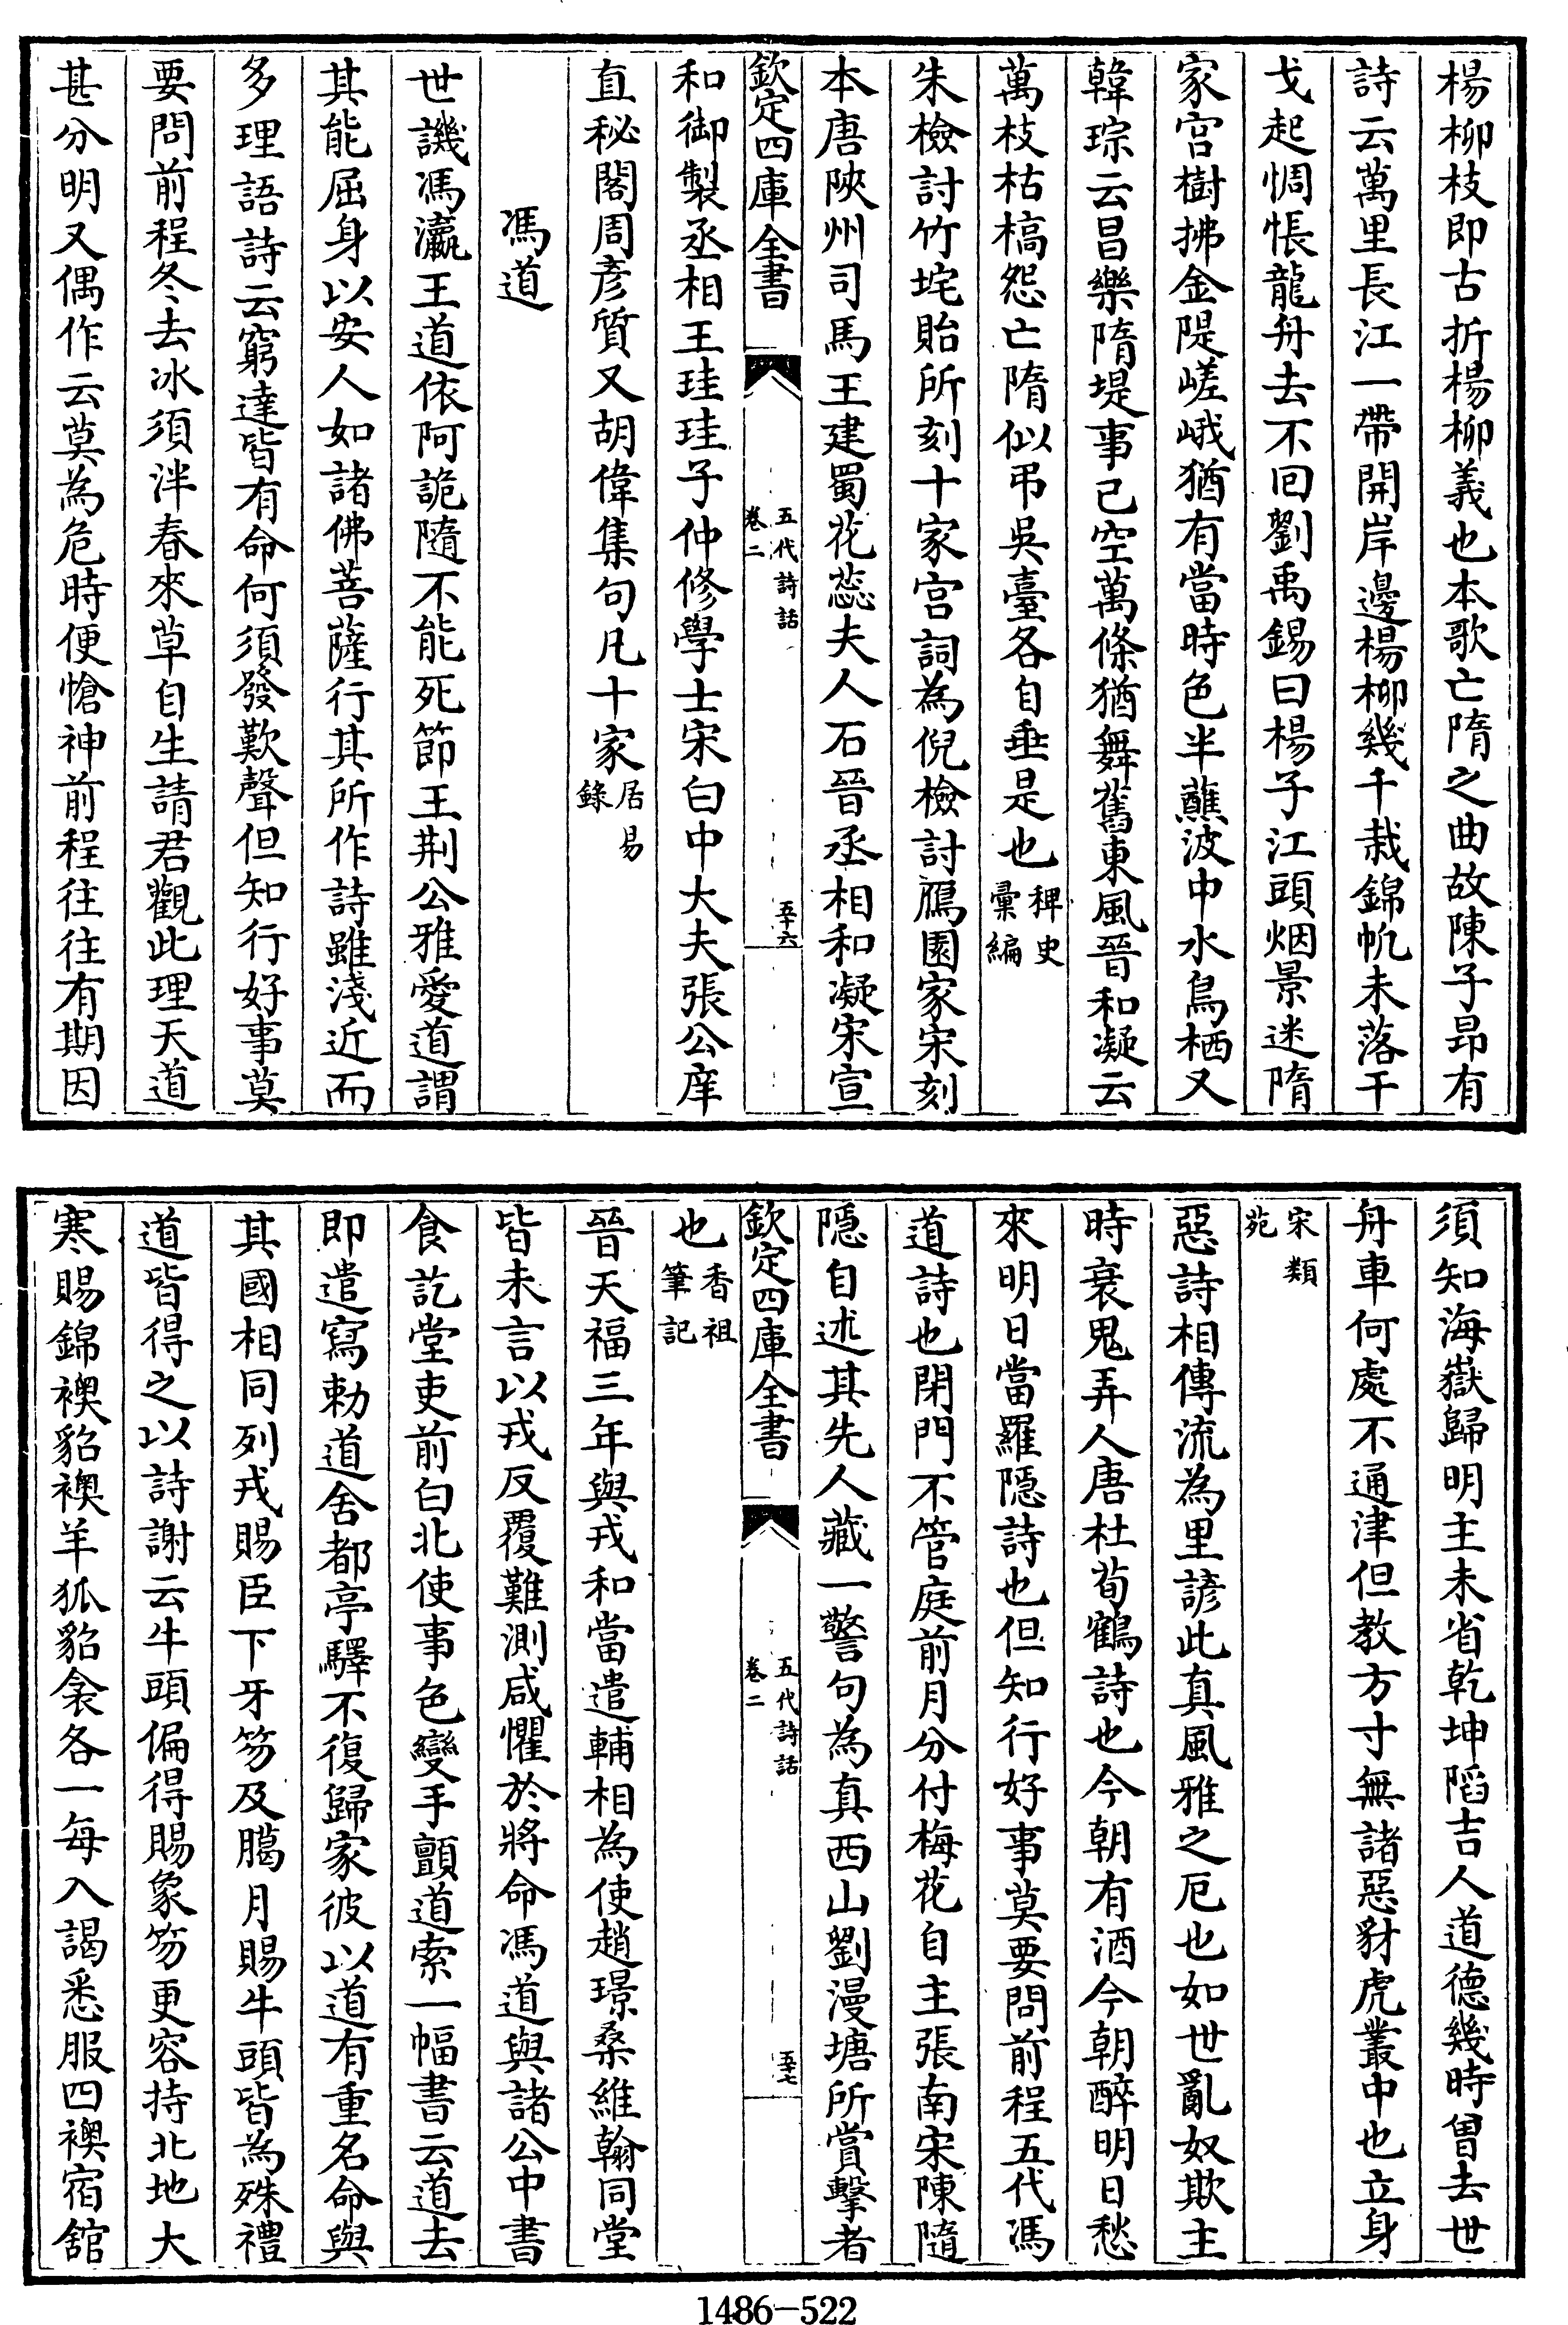 楊柳枝即古折楊柳義也本歌亡隋之曲故陳子昂有
詩云萬里長江一帶開岸邊楊柳幾千栽錦帆未落干
戈起惆悵龍舟去不回劉禹錫曰楊子江頭烟景迷隋
家宮樹拂金隄嵯峨猶有當時色半蘸波中水鳥栖又
韓琮云昌樂隋堤事已空萬條猶舞舊東風晉和凝云
萬枝枯槁怨亡隋似弔吳臺各自垂是也稗史彙編
朱檢討竹垞貽所刻十家宮詞為倪檢討鴈園家宋刻
本唐陝州司馬王建蜀花蕊夫人石晉丞相和凝宋宣
欽定四庫全書
五代詩話
卷二
五十六
和御製丞相王珪珪子仲修學士宋白中大夫張公庠
直秘閣周彥質又胡偉集句凡十家居易錄
馮道
世譏馮瀛王道依阿詭隨不能死節王荆公雅愛道謂
其能屈身以安人如諸佛菩薩行其所作詩雖淺近而
多理語詩云窮達皆有命何須發歎聲但知行好事莫
要問前程冬去冰須泮春來草自生請君觀此理天道
甚分明又偶作云莫為危時便愴神前程往往有期因
須知海嶽歸明主未省乾坤陷吉人道德幾時曾去世
舟車何處不通津但教方寸無諸惡豺虎叢中也立身
宋類苑
惡詩相傳流為里諺此真風雅之厄也如世亂奴欺主
時衰鬼弄人唐杜荀鶴詩也今朝有酒今朝醉明日愁
來明日當羅隱詩也但知行好事莫要問前程五代馮
道詩也閉門不管庭前月分付梅花自主張南宋陳隨
隱自述其先人藏一警句為真西山劉漫塘所賞擊者
欽定四庫全書
五代詩話
卷二
五十七
也香祖筆記
晉天福三年與戎和當遣輔相為使趙璟桑維翰同堂
皆未言以戎反覆難測咸懼於將命馮道與諸公中書
食訖堂吏前白北使事色變手顫道索一幅書云道去
即遣寫勅道舍都亭驛不復歸家彼以道有重名命與
其國相同列戎賜臣下牙笏及臈月賜牛頭皆為殊禮
道皆得之以詩謝云牛頭偏得賜象笏更容持北地大
寒賜錦襖貂襖羊狐貂衾各一每入謁悉服四襖宿舘
1486-522